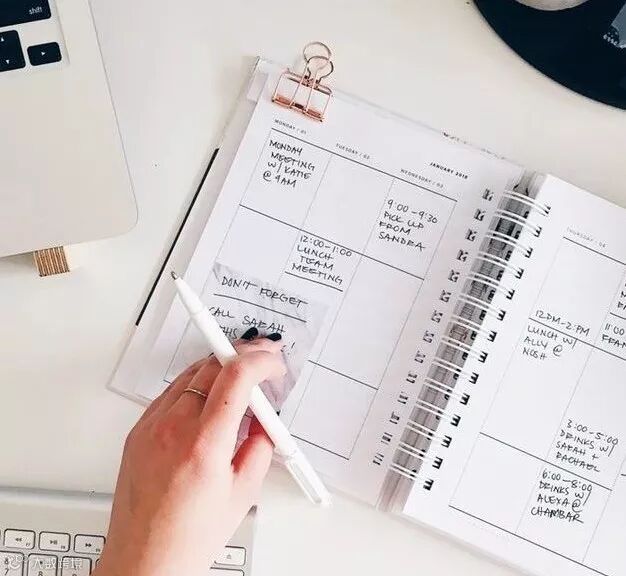 shift
MONDAY / 01
TUESDAY / 02
WEDNESDAY / 03
JANUARY 2018
MONDAY
MEETING
W/ KATIE
@ 9AM
9:00-9:30
PICK UP
FROM
SANDRA
12:00-1:00
LUNCH
TEAM
MEETING
DON'T FORGET
CALL SARAH
THURSDAY / 04
12PM-2PM
LUNCH W/
ALLY @
NOSH
11:00
3:00-5:00
DRINKS W/
SARAH +
RACHAEL
6:00-8:00
DRINKS W/
ALEXA @
CHAMBAR
大数跨境